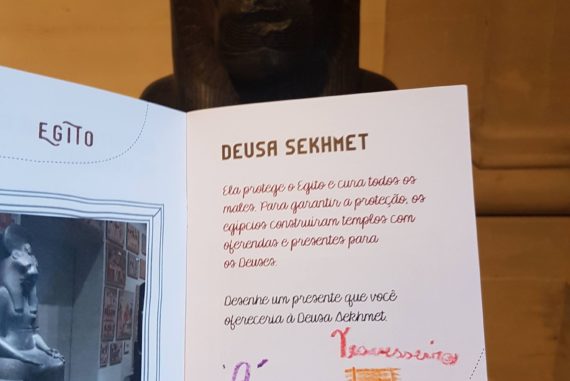 EGITO
DEUSA SEKHMET
Ela protege o Egito e cura todos os
males. Para garantir a proteção, os
egípcios construíram templos com
oferendas e presentes para
os Deuses.
Desenhe um presente que você
ofereceria à Deusa Sekhmet.
Travesseiro